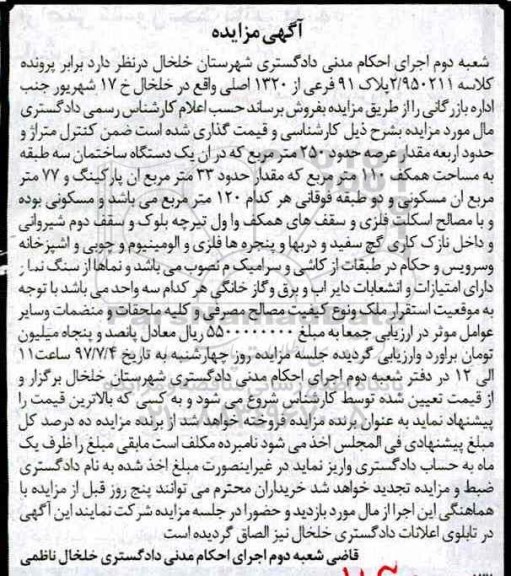 آگهی مزایده
شعبه دوم اجرای احکام مدنی دادگستری شهرستان خلخال درنظر دارد برابر پرونده
کلاسه ۲/۹۵۰۲۱۱پلاک ۹۱ فرعی از ۱۳۲۰ اصلی واقع در خلخال خ ۱۷ شهریور جنب
اداره بازرگانی را از طریق مزایده بفروش برساند حسب اعلام کارشناس رسمی دادگستری
مال مورد مزایده بشرح ذیل کارشناسی و قیمت گذاری شده است ضمن کنترل متراژ و
حدود اربعه مقدار عرصه حدود ۲۵۰ متر مربع که در ان یک دستگاه ساختمان سه طبقه
به مساحت همکف ۱۱۰ متر مربع که مقدار حدود ۳۳ متر مربع ان پارکینگ و ۷۷ متر
مربع ان مسکونی و دو طبقه فوقانی هر کدام ۱۲۰ متر مربع می باشد و مسکونی بوده
و با مصالح اسکلت فلزی و سقف های همکف وا ول تیرچه بلوک و سقف دوم شیروانی
و داخل نازک کاری گچ سفید و دربها و پنجره ها فلزی و الومینیوم و چوبی و اشپزخانه
وسرویس و حکام در طبقات از کاشی و سرامیک م نصوب می باشد و نماها از سنگ نما ر
دارای امتیازات و انشعابات دایر اب و برق و گاز خانگی هر کدام سه واحد می باشد با توجه
به موقعیت استقرار ملک ونوع کیفیت مصالح مصرفی و کلیه ملحقات و منضمات وسایر
عوامل موثر در ارزیابی جمعا به مبلغ ۵۵۰۰۰۰۰۰۰۰ ریال معادل پانصد و پنجاه میلیون
تومان براورد وارزیابی گردیده جلسه مزایده روز چهارشنبه به تاریخ ۹۷/۷/۴ ساعت۱۱
الی ۱۲ در دفتر شعبه دوم اجرای احکام مدنی دادگستری شهرستان خلخال برگزار و
از قیمت تعیین شده توسط کارشناس شروع می شود و به کسی که بالاترین قیمت را
پیشنهاد نماید به عنوان برنده مزایده فروخته خواهد شد از برنده مزایده ده درصد کل
مبلغ پیشنهادی فی المجلس اخذ می شود نامبرده مکلف است مابقی مبلغ را ظرف یک
ماه به حساب دادگستری واریز نماید در غیراینصورت مبلغ اخذ شده به نام دادگستری
ضبط و مزایده تجدید خواهد شد خریداران محترم می توانند پنج روز قبل از مزایده با
هماهنگی این اجرا از مال مورد بازدید و حضورا در جلسه مزایده شرکت نمایند این آگهی
در تابلوی اعلانات دادگستری خلخال نیز الصاق گردیده است
قاضی شعبه دوم اجرای احکام مدنی دادگستری خلخال ناظمی